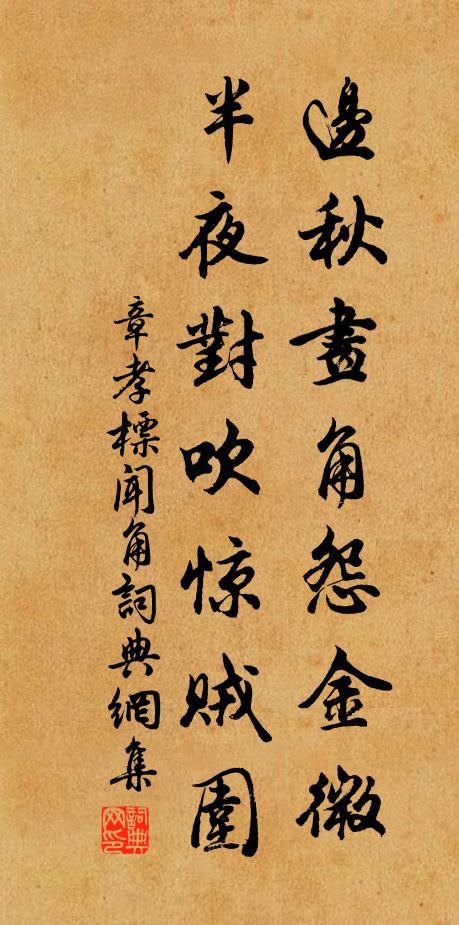 邊秋畫角怨金微
半夜對吹惊賊圍
章孝標聞角詞典網集
詞典網印